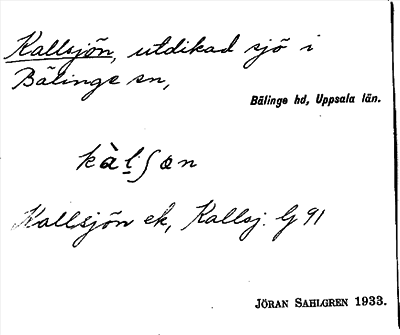 Kallsjön, utdikad sjö i
Bälinge sn,
Bälinge hd, Uppsala län.
kàl̠ʃɷn
Kallsjön ek, Kallsj. G 91
JÖRAN SAHLGREN 1933.